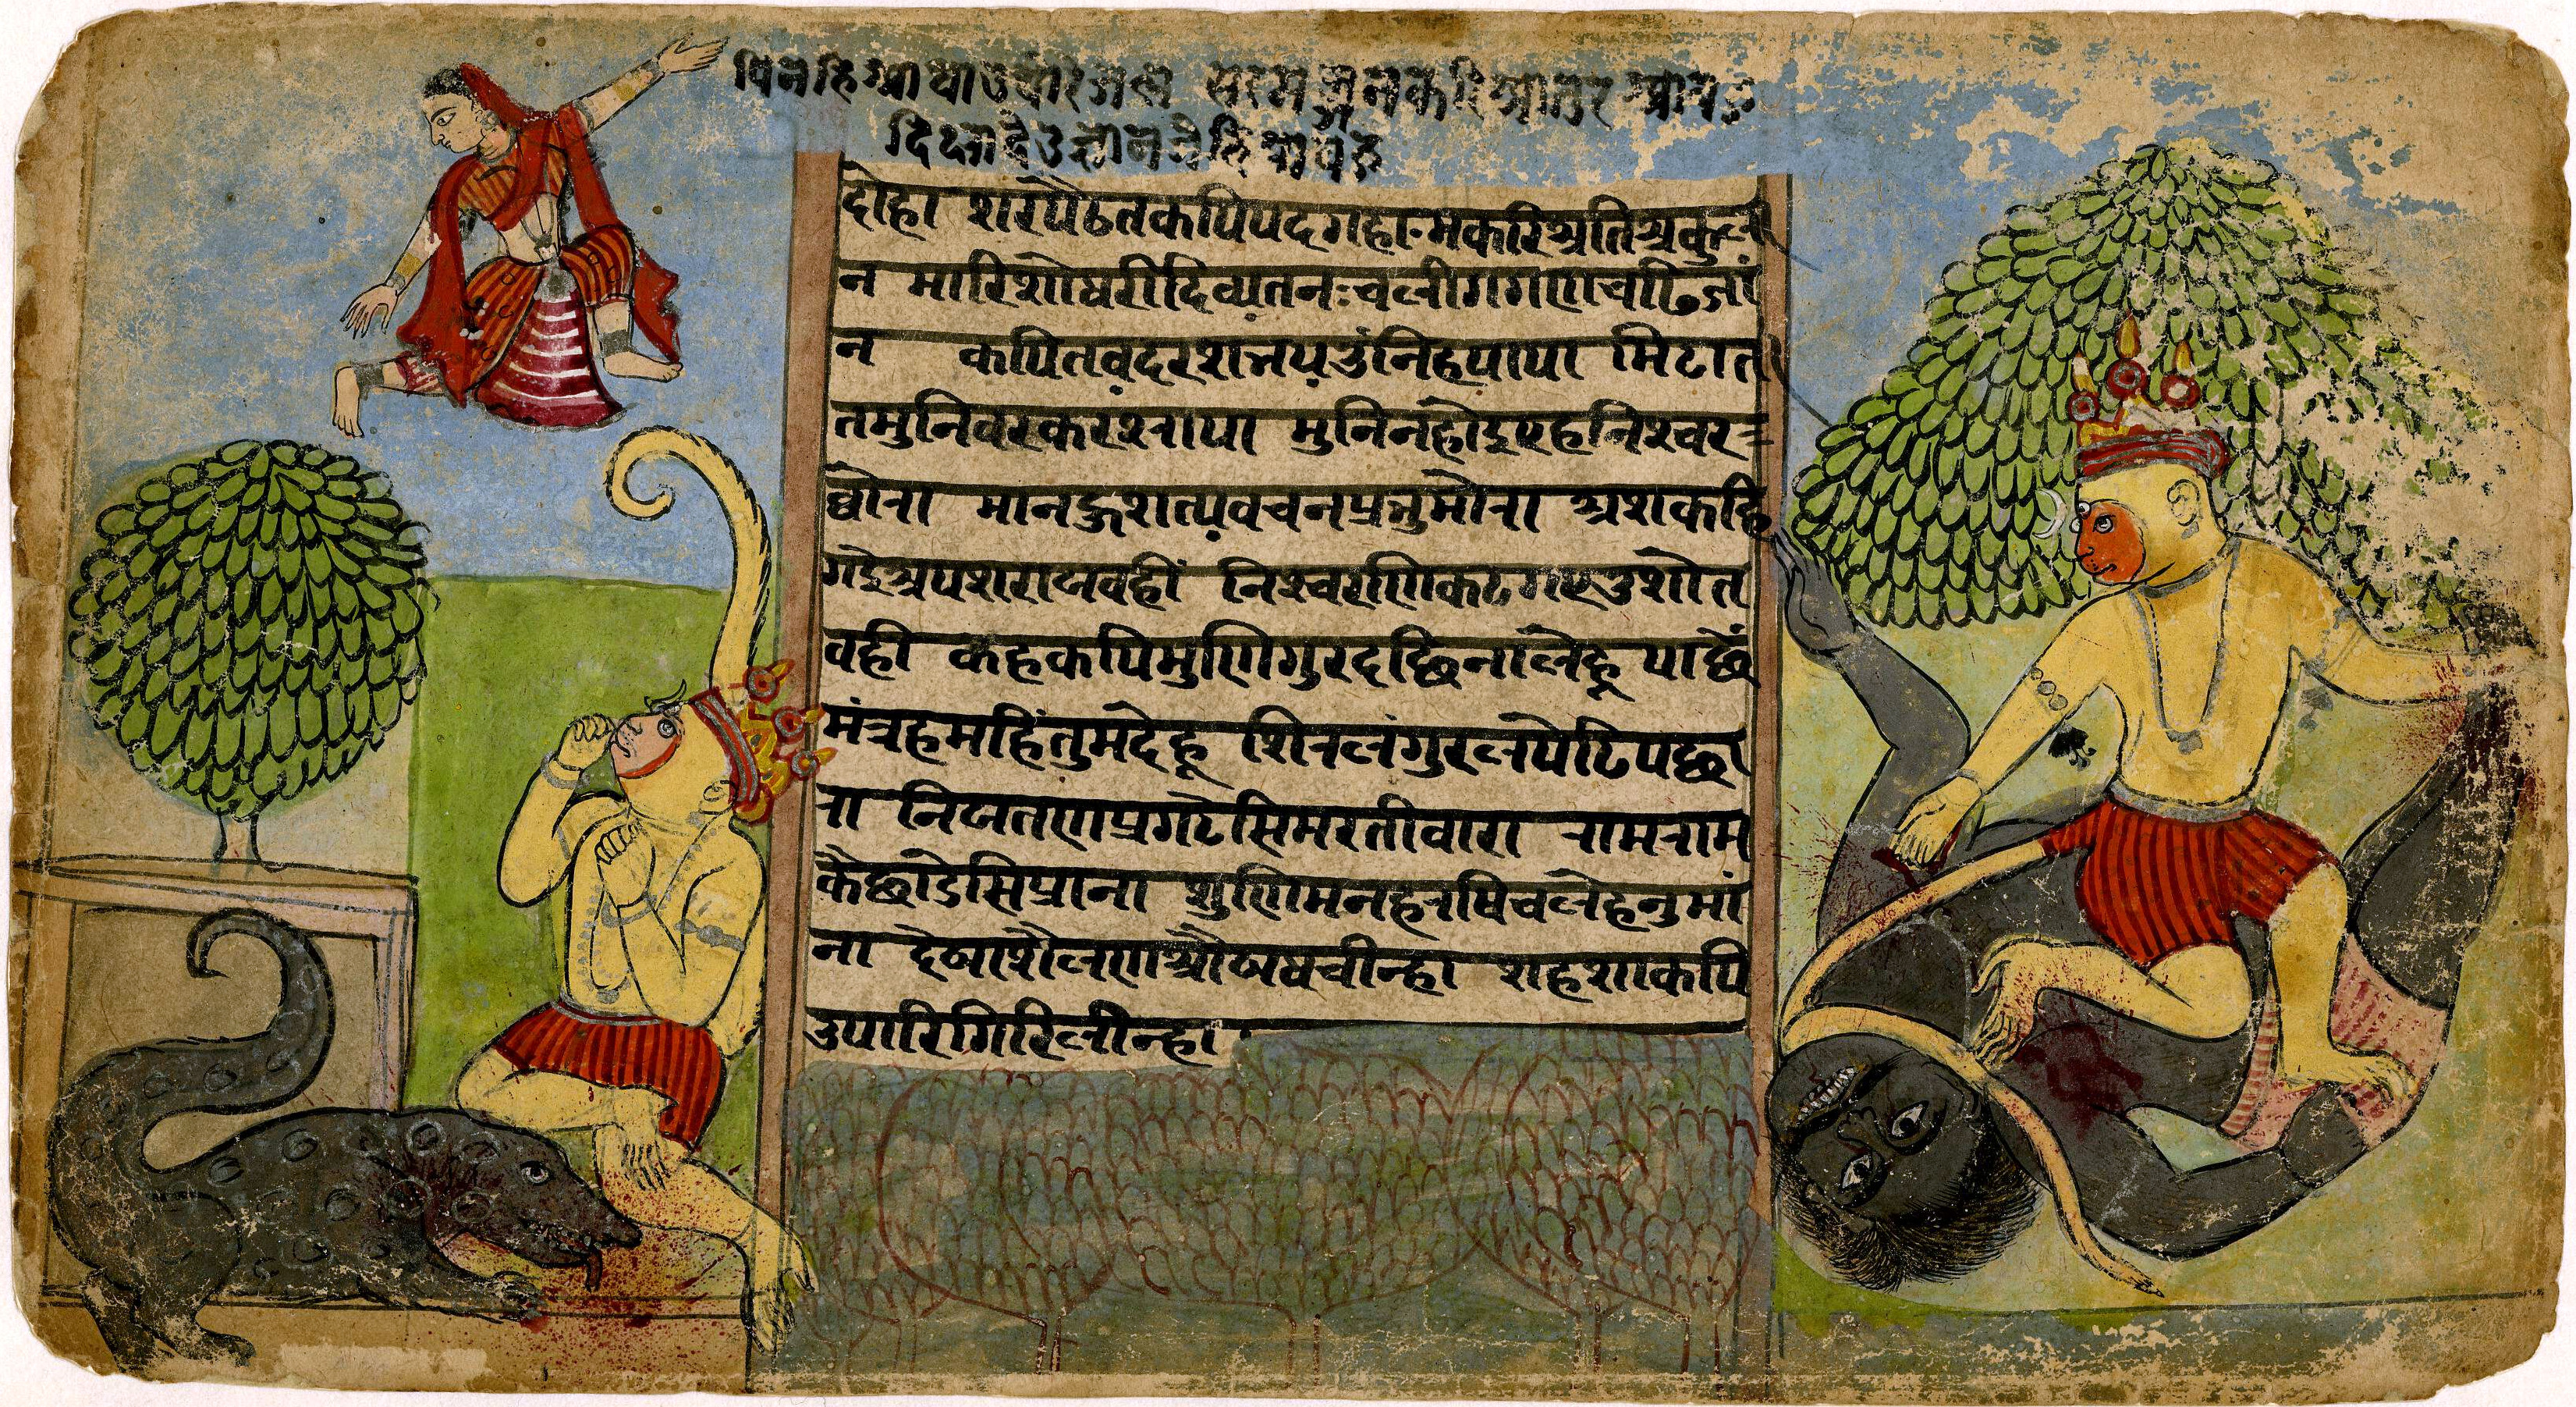 दोहा शरपैठतकपिपदगहा॰मकरिअतिअकुला
न मारिशोधरीदिव्यतनःचलीगगणचढिजां
न कपितवदरशनयउंनिहपापा मिटात
तमुनिवरकरश्रापा मुनिनहोइएहनिश्चर
घोरा मानहुशत्यवचनप्रभुमोरा अशकहि
गइअपशराजवहीं निश्चरणिकटगएउशोत
वही कहकपिमुणिगुरदछिनालेहू पाछें
मंत्रहमहिंतुमदेहू शिरलंगुरलपेटिपछा
रा निजतणप्रगटेसिमरतीवारा रामराम
कैछाडेसिप्राना शुणिमनहरषिचलेहनुमां
ना देखाशैलणऔखधचीन्हा शहशाकपि
उपारिगिरिलीन्हा